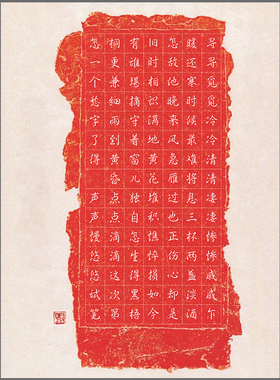 寻寻觅觅冷冷清清凄凄惨惨戚戚乍
暖还寒时候最难将息三杯两盏淡酒
怎敌他晚来风急雁过也正伤心却是
旧时相识满地黄花堆积憔悴损如今
有谁堪摘守着窗儿独自怎生得黑梧
桐更兼细雨到黄昏点点滴滴这次第
怎一个愁字了得 声声慢 悠悠试笔